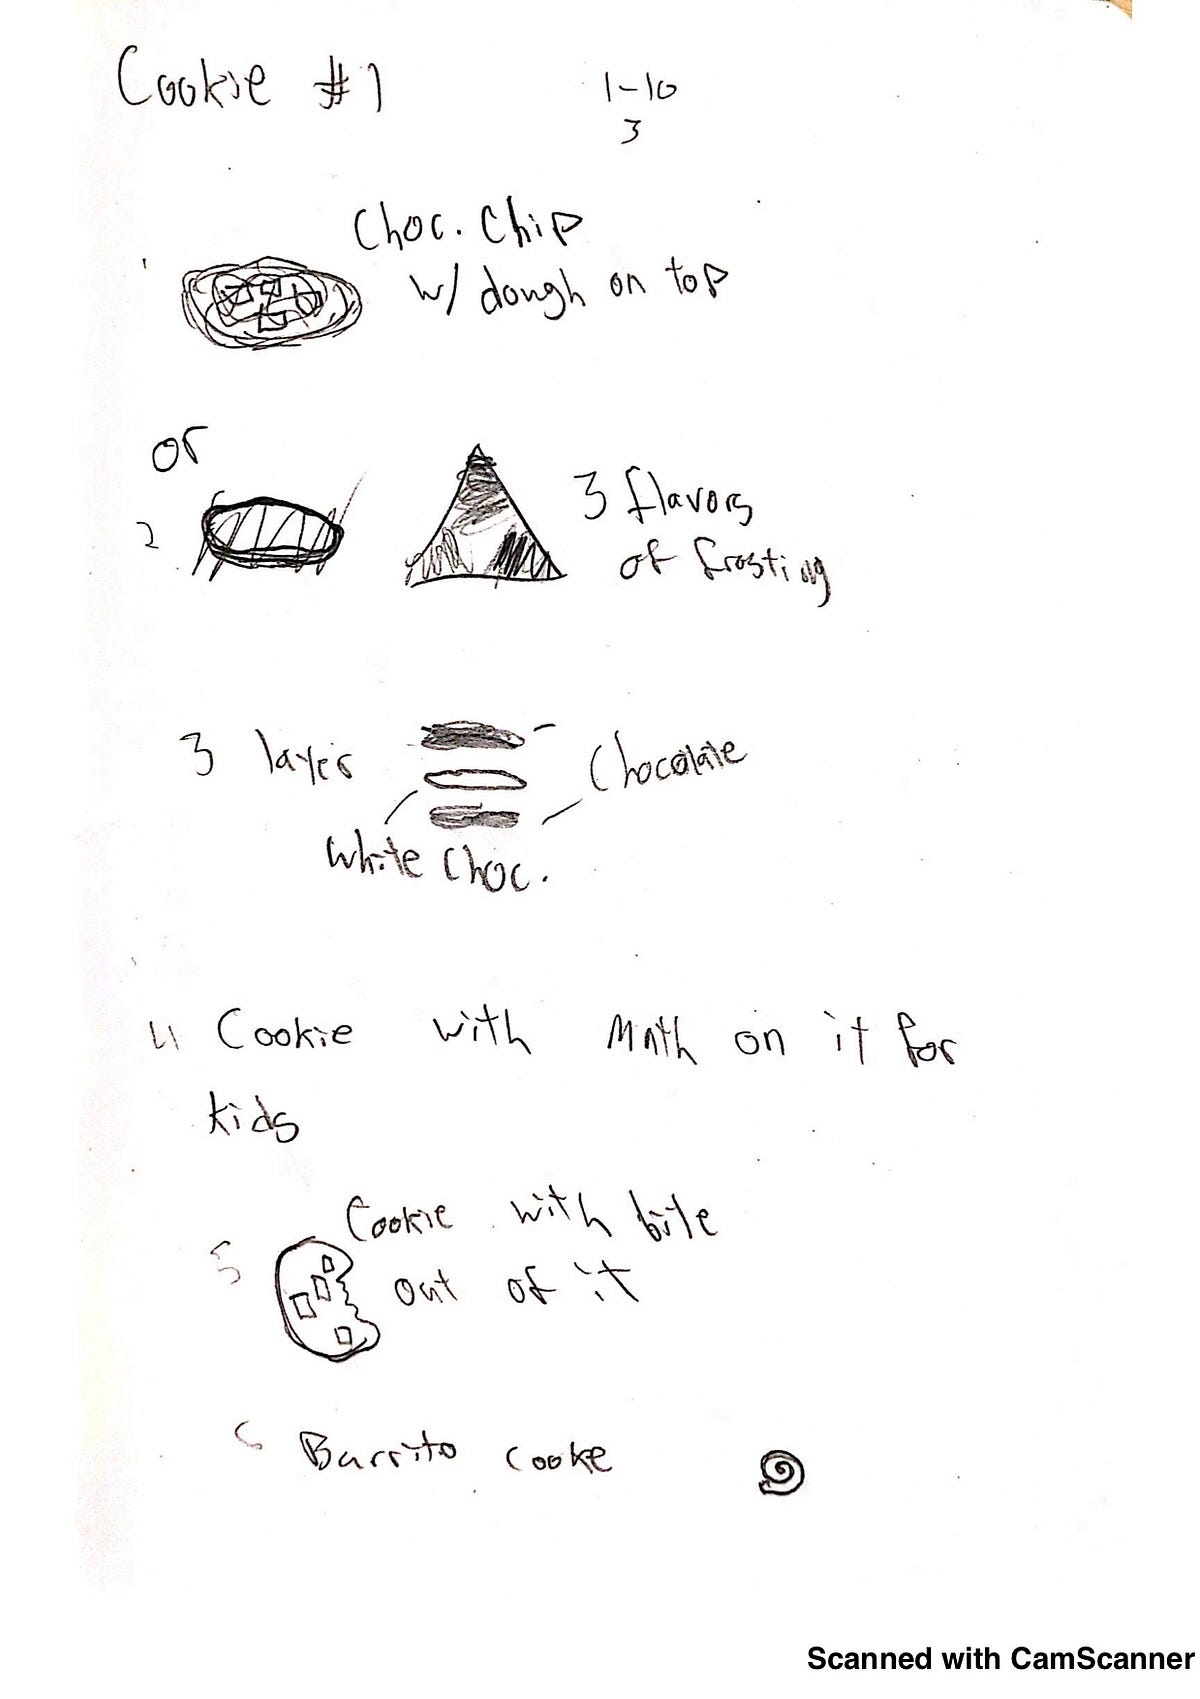 Cookie #1
1-10
3
1
Choc. Chip
w/ dough on top
or
2
3 flavors
of frosting
3 layers
Chocolate
White Choc.
4 Cookie with Math on it for
kids
5
Cookie with bite
out of it
6 Burrito cooke
Scanned with CamScanner